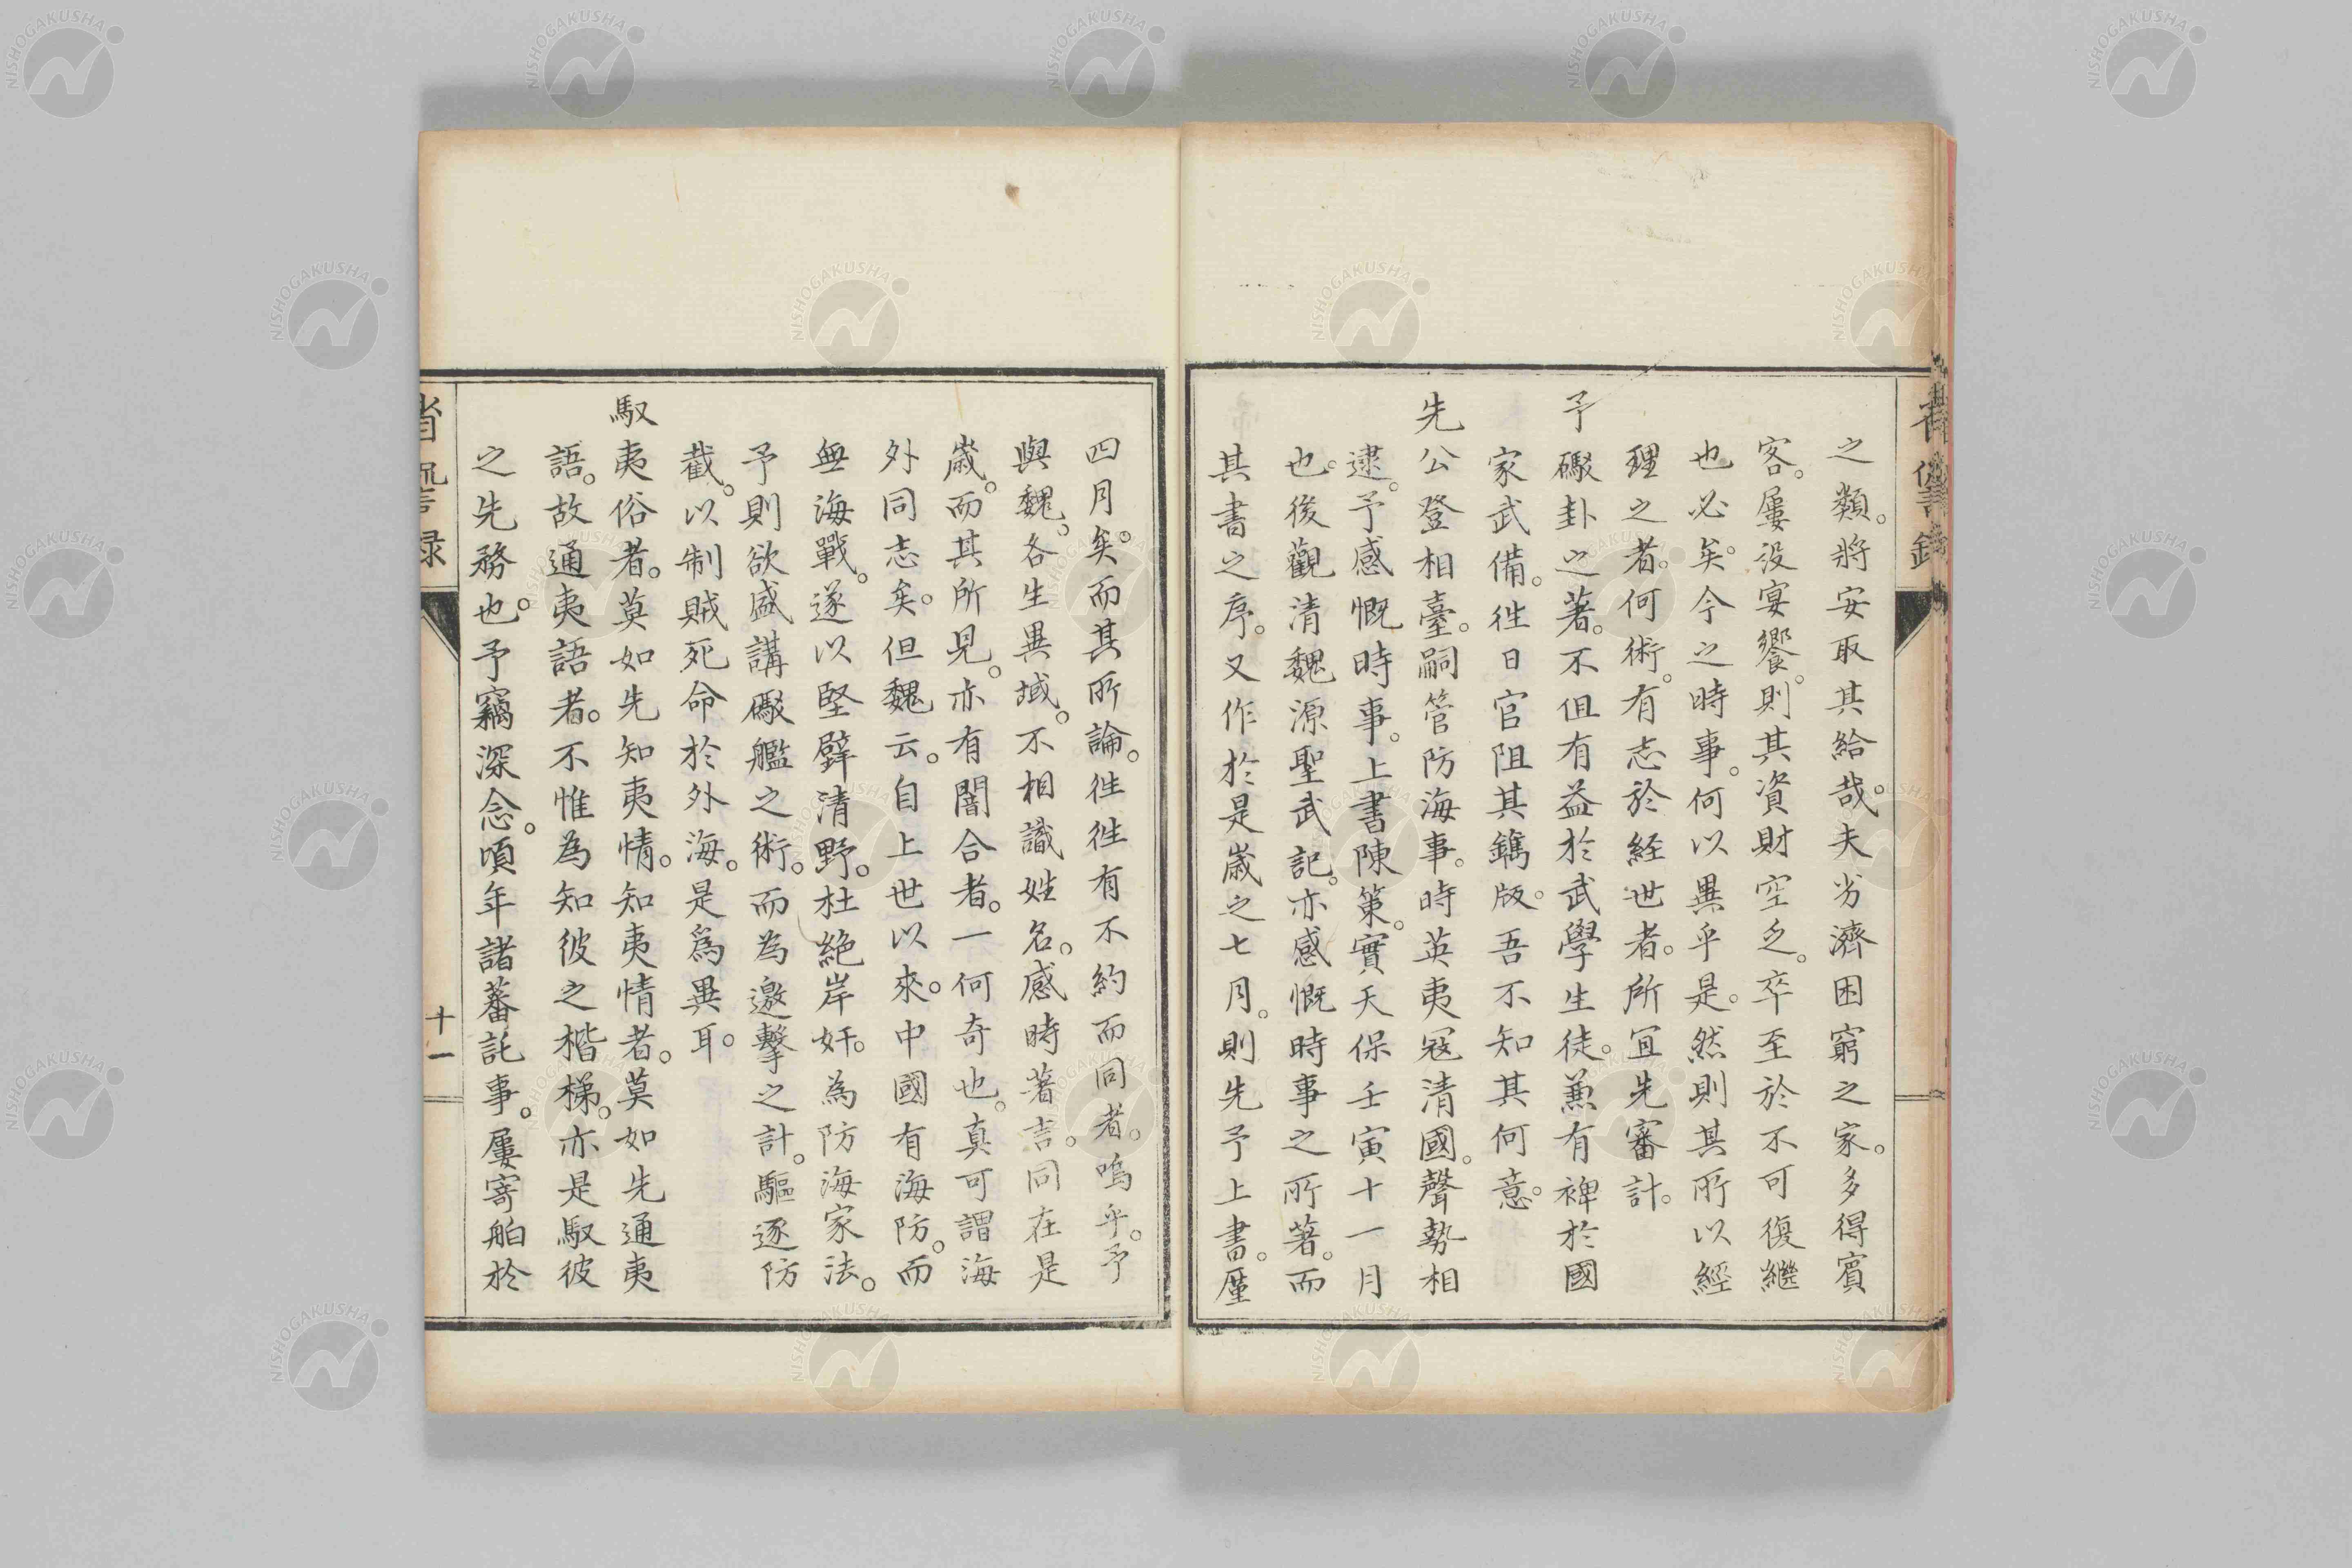 之類。將安取其給哉。夫劣濟困窮之家。多得賓
客。屢沒宴饗。則其資財空乏。卒至於不可復繼
也必矣。今之時事。何以異乎是。然則其所以經
理之者。何術。有志於経世者。所宜先審計。
予礮卦之著。不但有益於武學生徒。兼有裨於國
家武備。徃日官阻其鐫版。吾不知其何意。
先公登相臺。嗣管防海事。時英夷冦清國。聲勢相
逮。予感慨時事。上書陳策。實天保壬寅十一月
也。後觀清魏源聖武記。亦感慨時事之所著。而
其書之序。又作於是歳之七月。則先予上書。厪
四月矣。而其所論。徃徃有不約而同者。嗚乎。予
與魏。各生異域。不相識姓名。感時著言。同在是
歳。而其所見。亦有闇合者。一何奇也。真可謂海
外同志矣。但魏云。自上世以來。中國有海防。而
無海戰。遂以堅壁清野。杜絶岸奸。為防海家法。
予則欲盛講礮艦之術。而為邀擊之計。驅逐防
截。以制賊死命於外海。是爲異耳。
馭夷俗者。莫如先知夷情。知夷情者。莫如先通夷
語。故通夷語者。不惟為知彼之楷梯。亦是馭彼
之先務也。予竊深念。頃年諸蕃託事。屢寄舶於
省諐録
十一
NISHOGAKUSHA